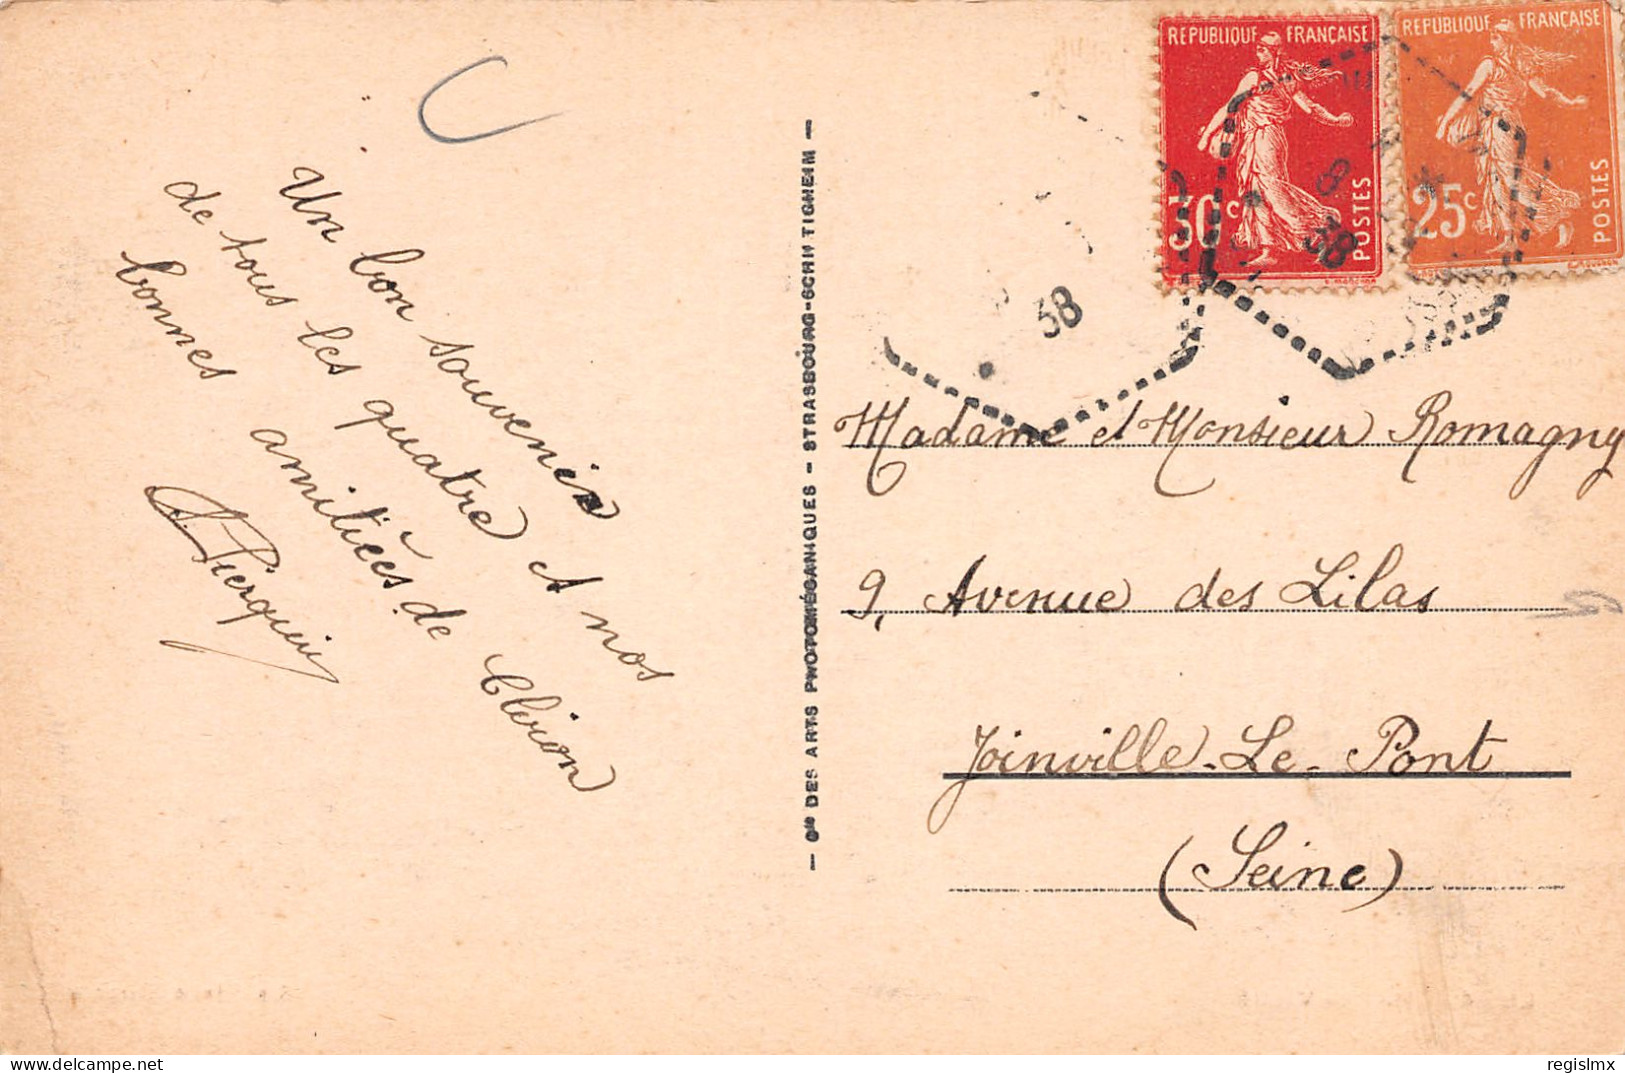 Un bon souvenir
de tous les quatre et nos
bonnes amitiés de Clvion
Pierquin
Cie DES ARTS PHOTOMÉCANIQUES - STRASBOURG-SCHILTIGHEIM
REPUBLIQUE FRANÇAISE
30c
POSTES
REPUBLIQUE FRANÇAISE
25c
POSTES
8
38
38
Madame et Monsieur Romagny
9, Avenue des Lilas
Joinville-Le-Pont
(Seine)
delcampe.net
regislmx